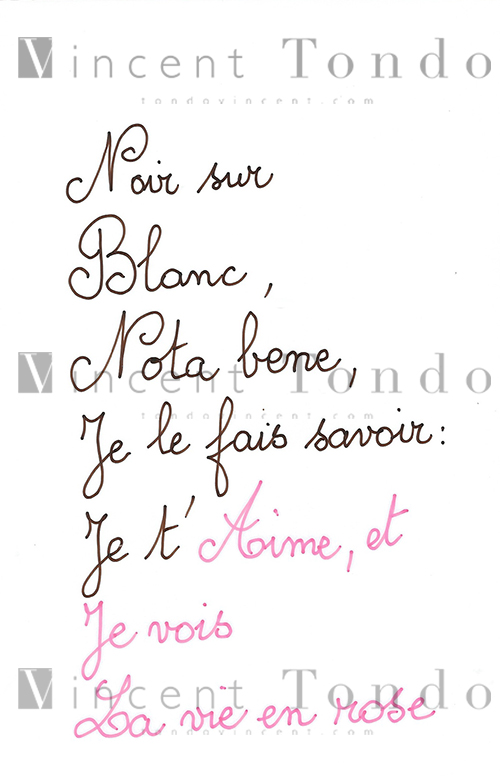 Vincent Tondo
tondovincent.com
Noir sur
Blanc,
Nota bene,
Vincent Tondo
tondovincent.com
Je le fais savoir:
Je t'Aime, et
Je vois
Vincent Tondo
La vie en rose
tondovincent.com